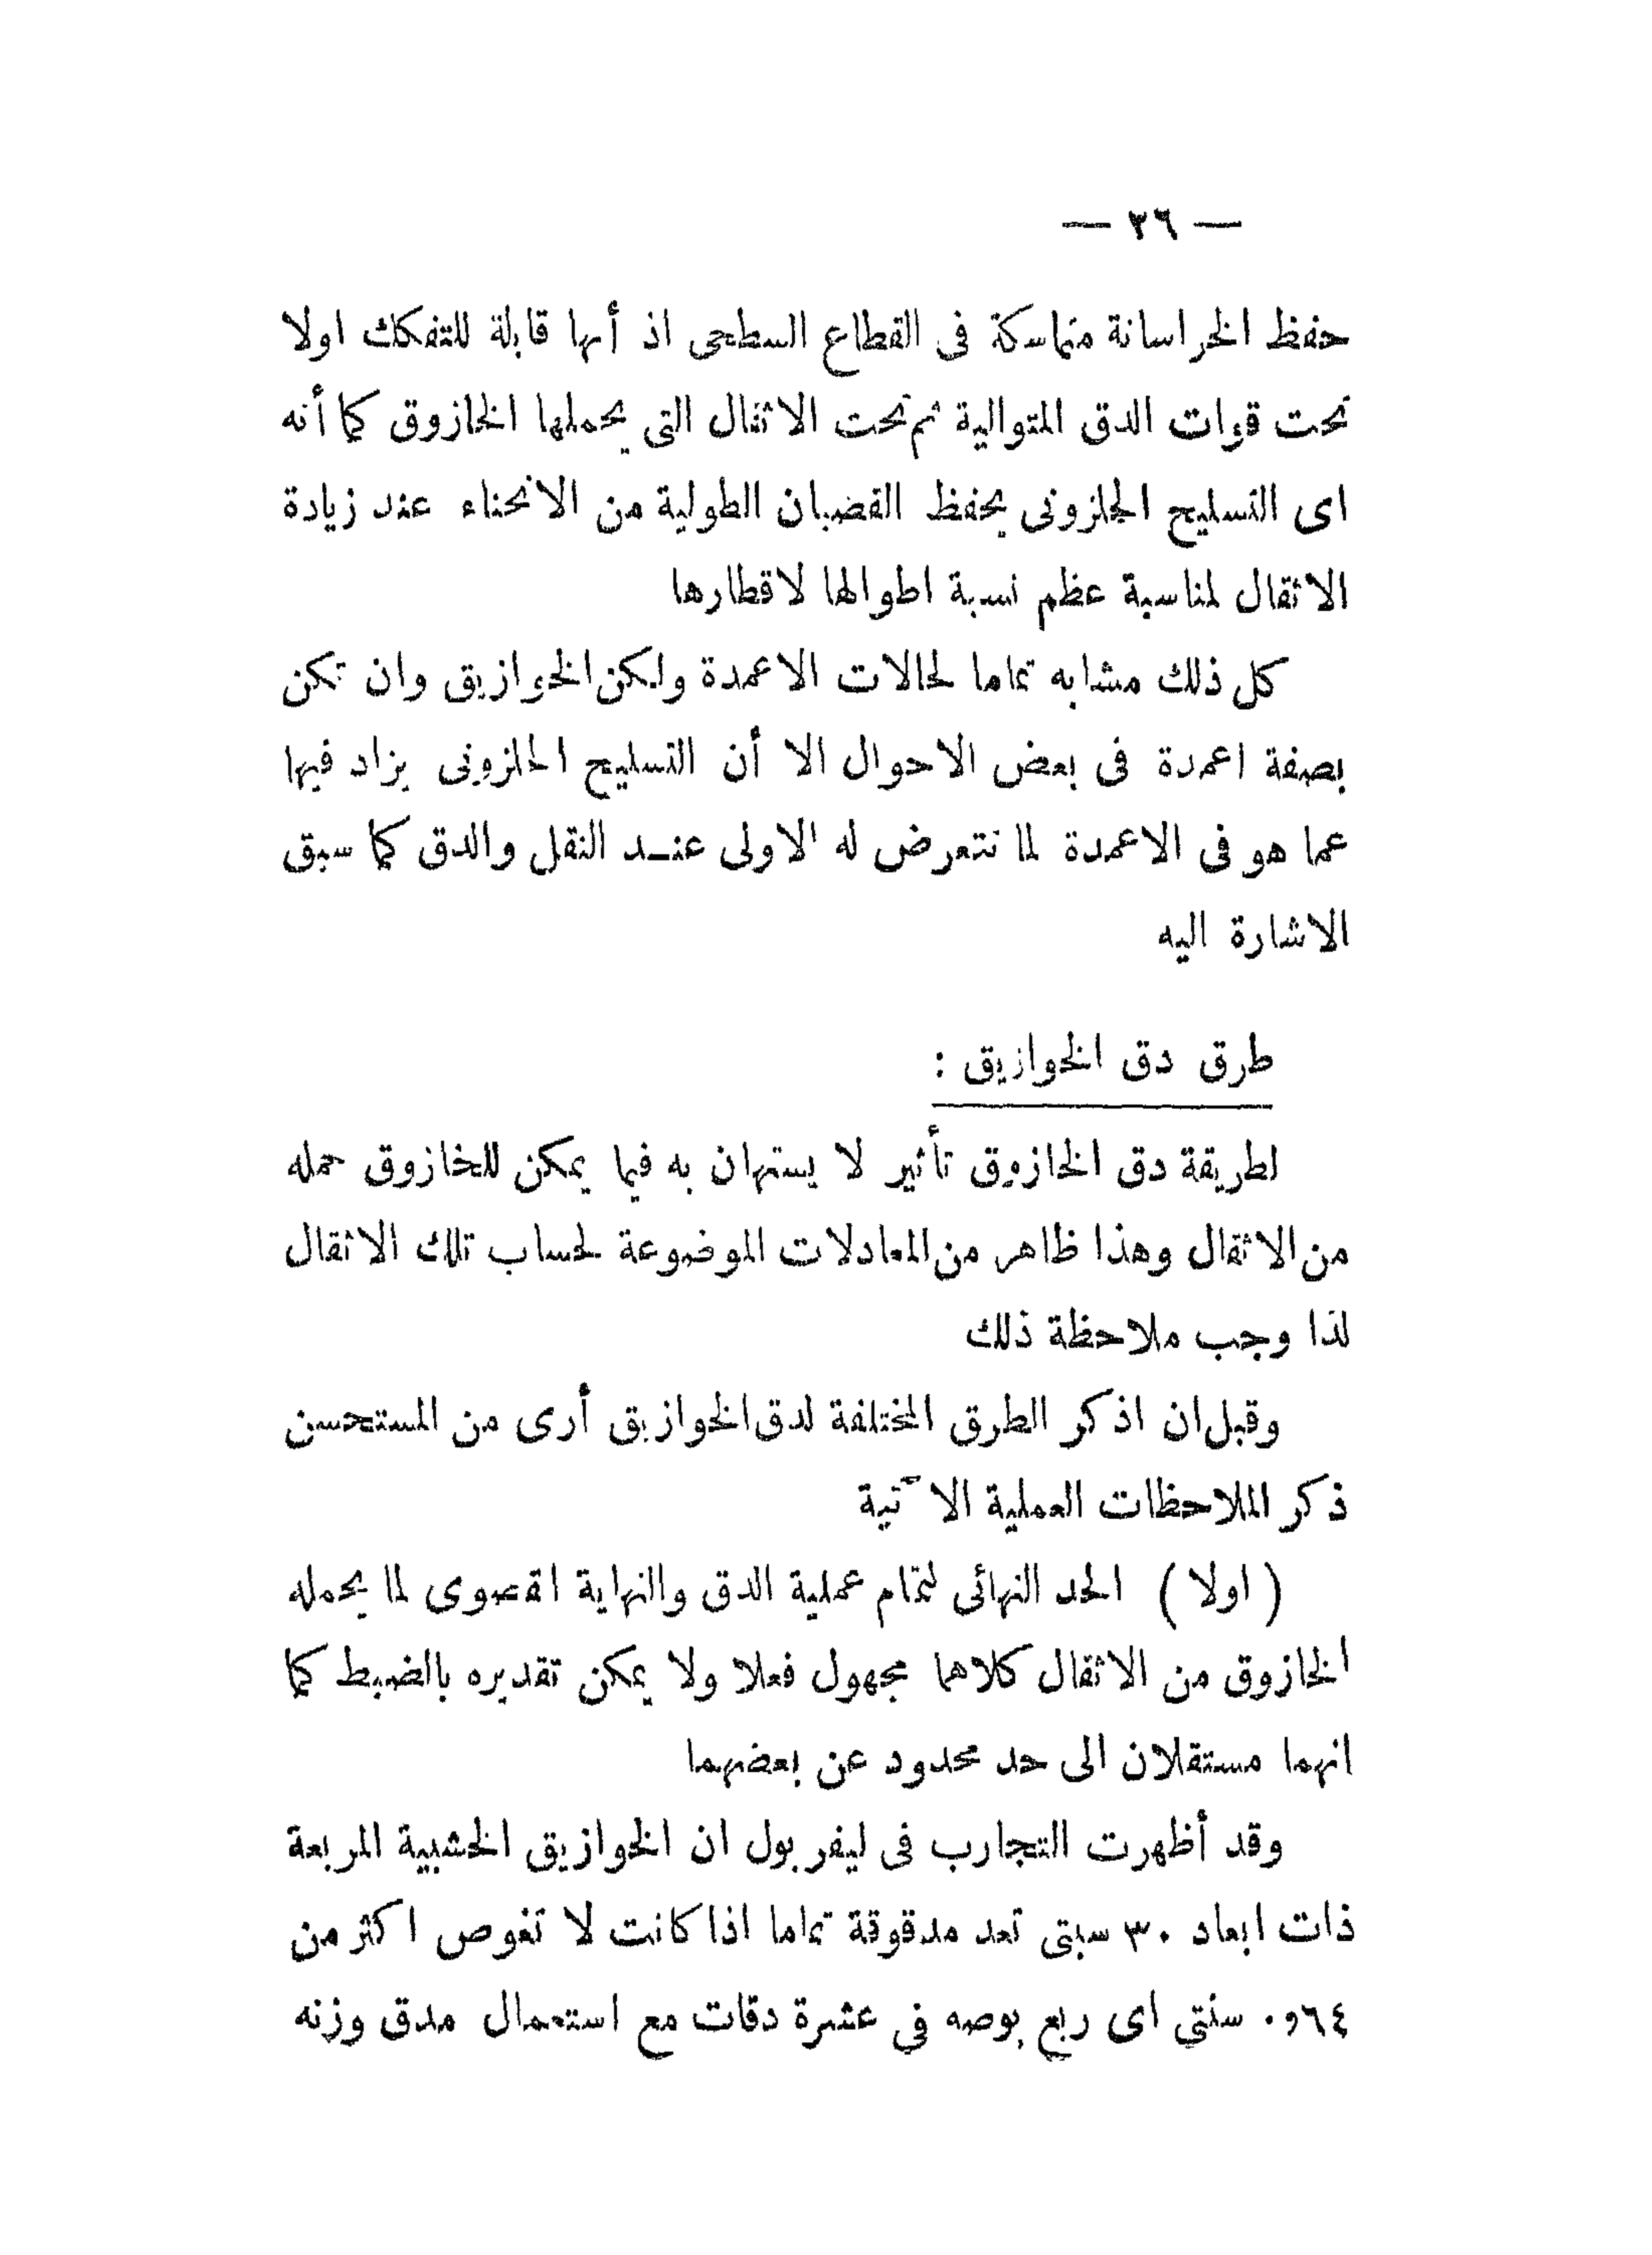 — ٢٦ —
حفظ الخراسانة متماسكة فى القطاع السطحى اذ أنها قابلة للتفكك اولا
تحت قوات الدق المتوالية ثم تحت الاثقال التى يحملها الخازوق كما أنه
اى التسليح الحلزونى يحفظ القضبان الطولية من الانحناء عند زيادة
الاثقال لمناسبة عظم نسبة اطوالها لاقطارها
كل ذلك مشابه تماما لحالات الاعمدة ولكن الخوازيق وان تكن
بصفة اعمدة فى بعض الاحوال الا أن التسليح الحلزونى يزاد فيها
عما هو فى الاعمدة لما تتعرض له الاولى عنـد النقل والدق كما سبق
الاشارة اليه
طرق دق الخوازيق :
لطريقة دق الخازوق تأثير لا يستهان به فيما يمكن للخازوق حمله
من الاثقال وهذا ظاهر من المعادلات الموضوعة لحساب تلك الاثقال
لذا وجب ملاحظة ذلك
وقبل ان اذكر الطرق المختلفة لدق الخوازيق أرى من المستحسن
ذكر الملاحظات العملية الآتية
( اولا ) الحد النهائى لتمام عملية الدق والنهاية القصوى لما يحمله
الخازوق من الاثقال كلاهما مجهول فعلا ولا يمكن تقديره بالضبط كما
انهما مستقلان الى حد محدود عن بعضهما
وقد أظهرت التجارب فى ليفربول ان الخوازيق الخشبية المربعة
ذات ابعاد ٣٠ سبتى تعد مدقوقة تماما اذا كانت لا تغوص اكثر من
٦٤و٠ سنتى اى ربع بوصه فى عشرة دقات مع استعمال مدق وزنه